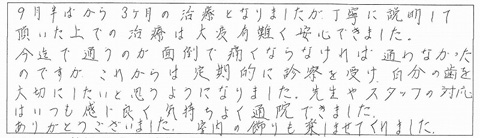 9月半ばから3ヶ月の治療となりましたが丁寧に説明して
頂いた上での治療は大変有難く安心できました。
今迄で通うのが面倒で痛くならなければ通わなかった
のですが、これからは定期的に診察を受け、自分の歯を
大切にしたいと思うようになりました。先生やスタッフの対応
はいつも感じ良く気持ちよく通院できました。
ありがとうございました。室内の飾りも楽しませてくれました。